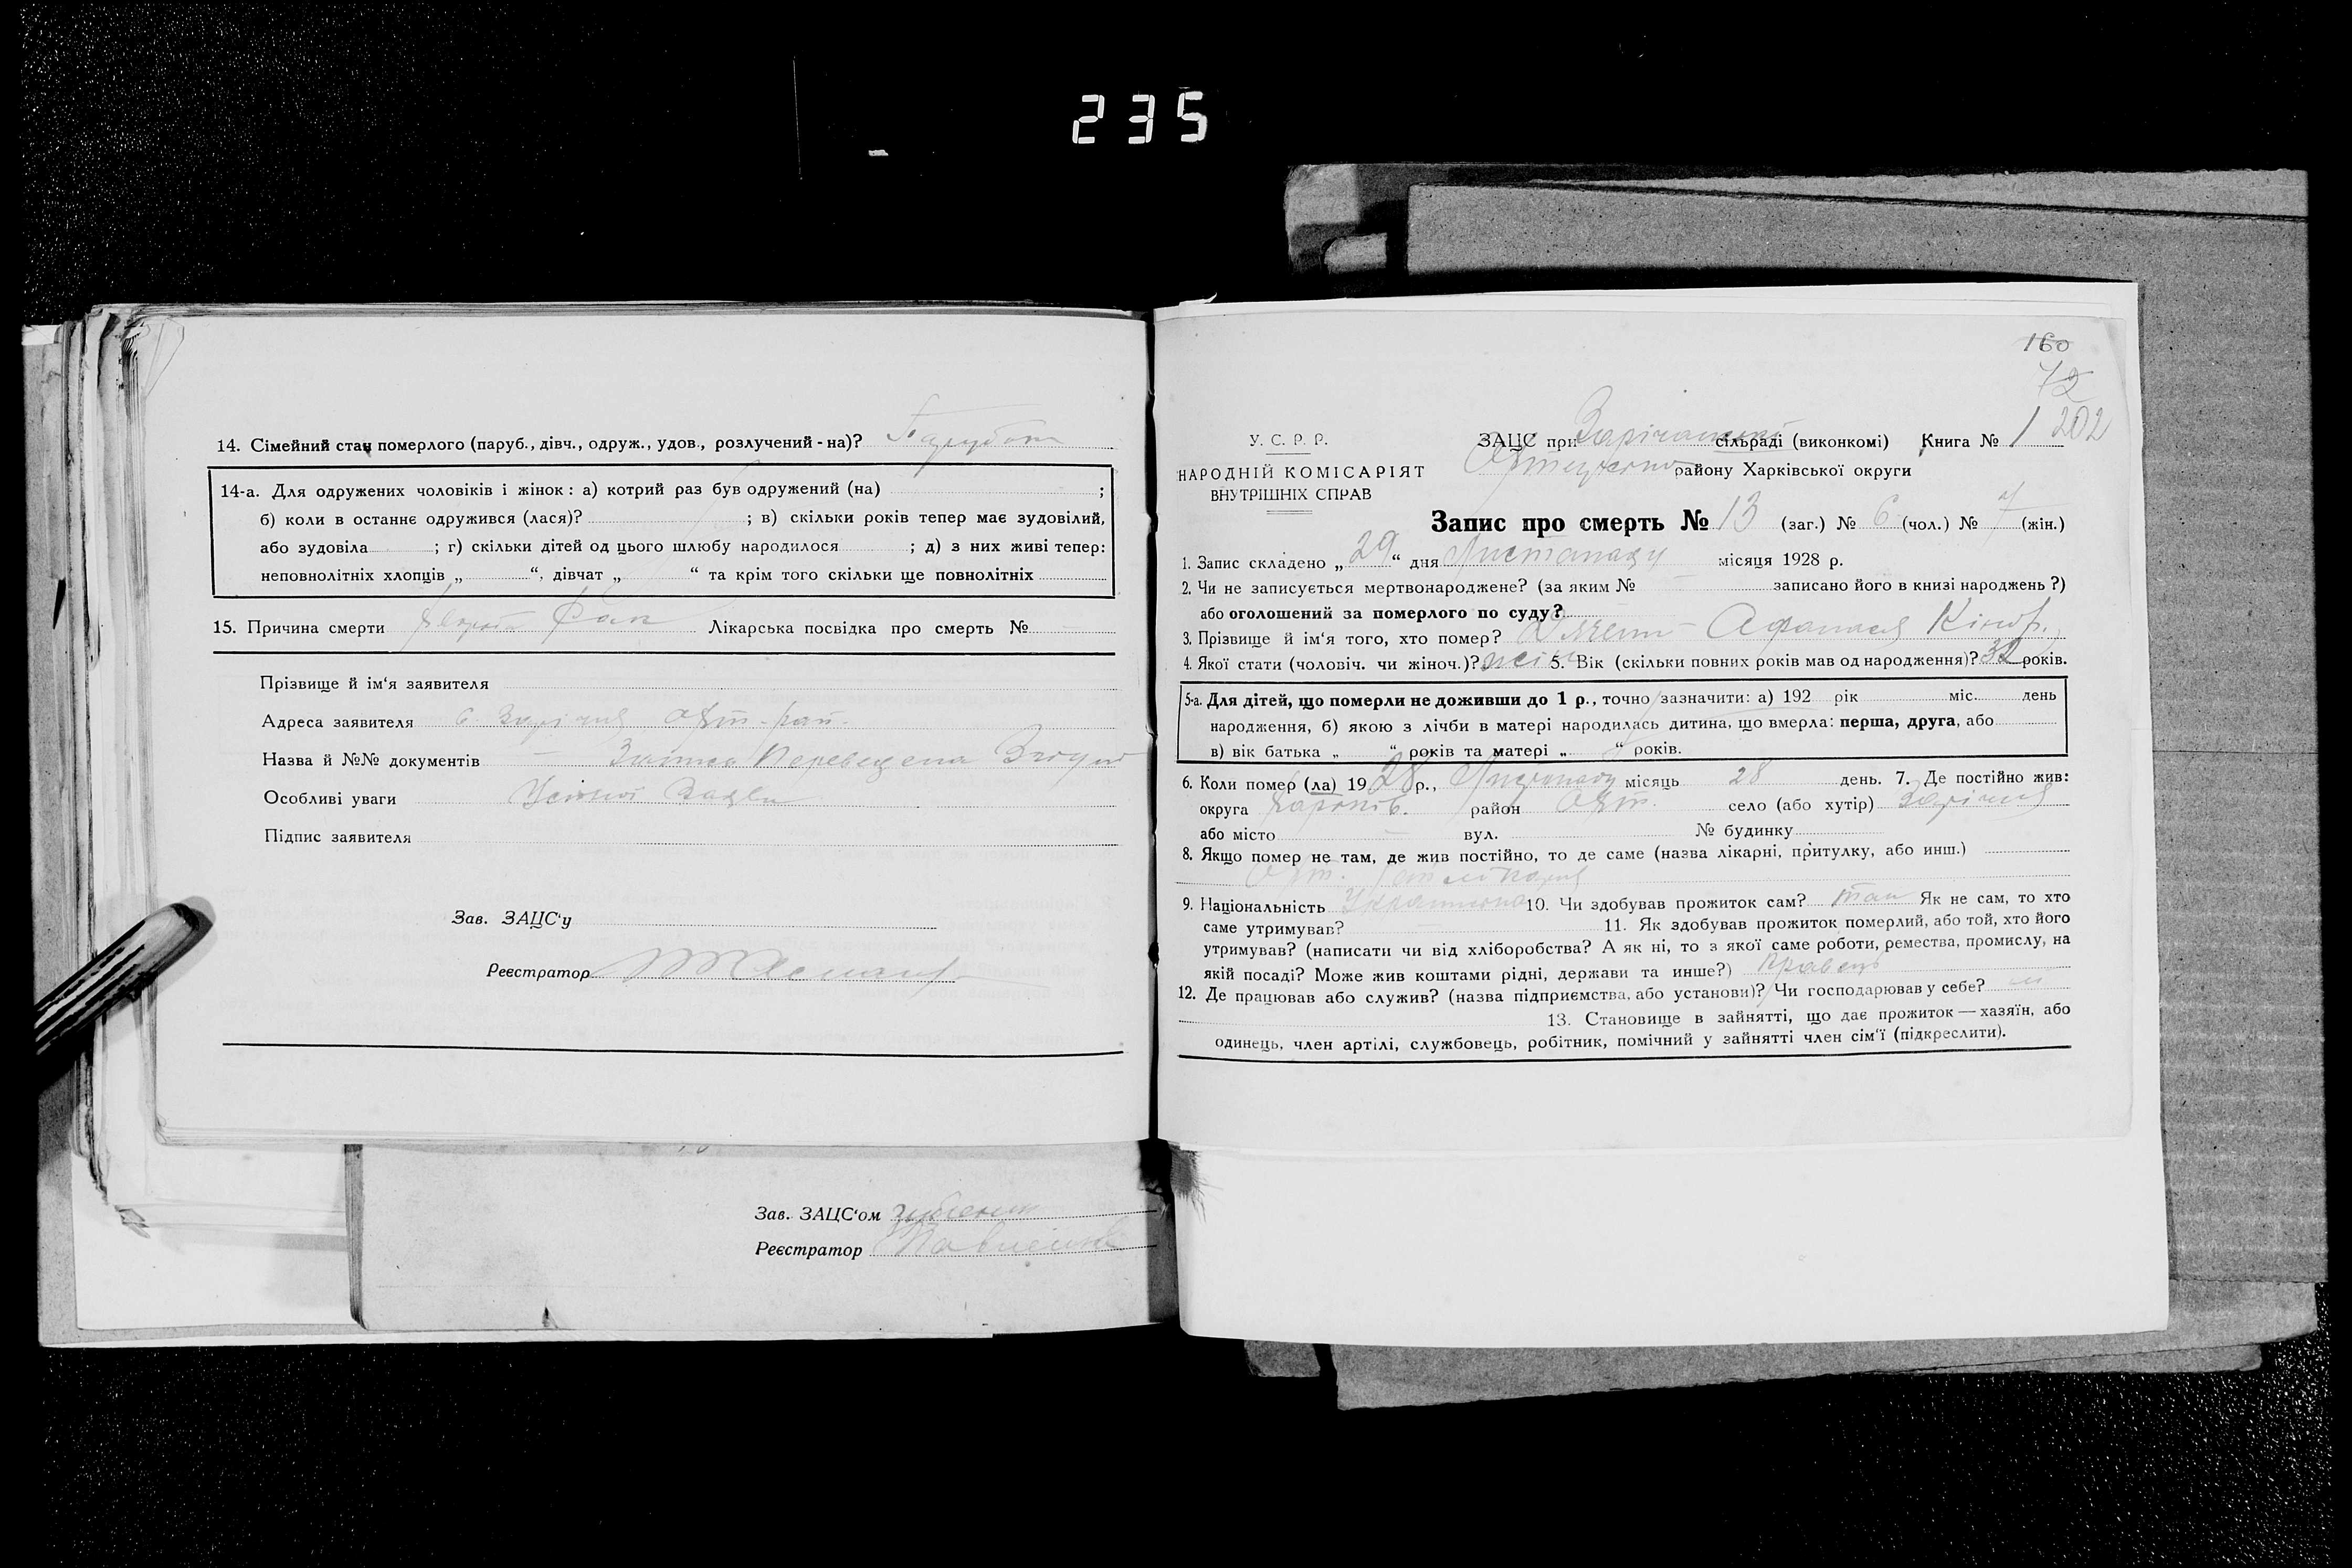 235
14. Сімейний стан померлого (паруб., дівч., одруж., удов., розлучений - на)?
14-а. Для одружених чоловіків і жінок : а) котрий раз був одружений (на) ;
б) коли в останнє одружився (лася)? ; в) скільки років тепер має зудовілий,
або зудовіла ; г) скільки дітей од цього шлюбу народилося ; д) з них живі тепер:
неповнолітніх хлопців „ “, дівчат „ “ та крім того скільки ще повнолітніх
15. Причина смерти Лікарська посвідка про смерть № —
Прізвище й ім‘я заявителя
Адреса заявителя с.
Назва й №№ документів —
Особливі уваги Усіної Заяви
Підпис заявителя
Зав. ЗАЦС‘у
Реєстратор
Зав. ЗАЦС‘ом
Реєстратор
160
72
202
У. С. Р. Р.
НАРОДНІЙ КОМІСАРІЯТ
ВНУТРІШНІХ СПРАВ
ЗАЦС при сільраді (виконкомі) Книга № 1
району Харківської округи
Запис про смерть № 13 (заг.) № 6 (чол.) № 7 (жін.)
1. Запис складено „ 29 “ дня Листопаду місяця 1928 р.
2. Чи не записується мертвонароджене? (за яким № — записано його в книзі народжень ?)
або оголошений за померлого по суду?
3. Прізвище й ім‘я того, хто помер?
4. Якої стати (чоловіч. чи жіноч.)? 5. Вік (скільки повних років мав од народження)? 32 років.
5-а. Для дітей, що померли не доживши до 1 р., точно зазначити: а) 192 рік міс. день
народження, б) якою з лічби в матері народилась дитина, що вмерла: перша, друга, або
в) вік батька „ “ років та матері „ “ років.
6. Коли помер (ла) 1928 р., місяць 28 день. 7. Де постійно жив:
округа Харків. район село (або хутір) Заріччя
або місто — вул. № будинку
8. Якщо помер не там, де жив постійно, то де саме (назва лікарні, притулку, або инш.)
9. Національність 10. Чи здобував прожиток сам? так Як не сам, то хто
саме утримував? 11. Як здобував прожиток померлий, або той, хто його
утримував? (написати чи від хліборобства? А як ні, то з якої саме роботи, ремества, промислу, на
якій посаді? Може жив коштами рідні, держави та инше?) Кравець
12. Де працював або служив? (назва підприємства, або установи)? Чи господарював у себе?
13. Становище в зайнятті, що дає прожиток — хазяїн, або
одинець, член артілі, службовець, робітник, помічний у зайнятті член сім‘ї (підкреслити).